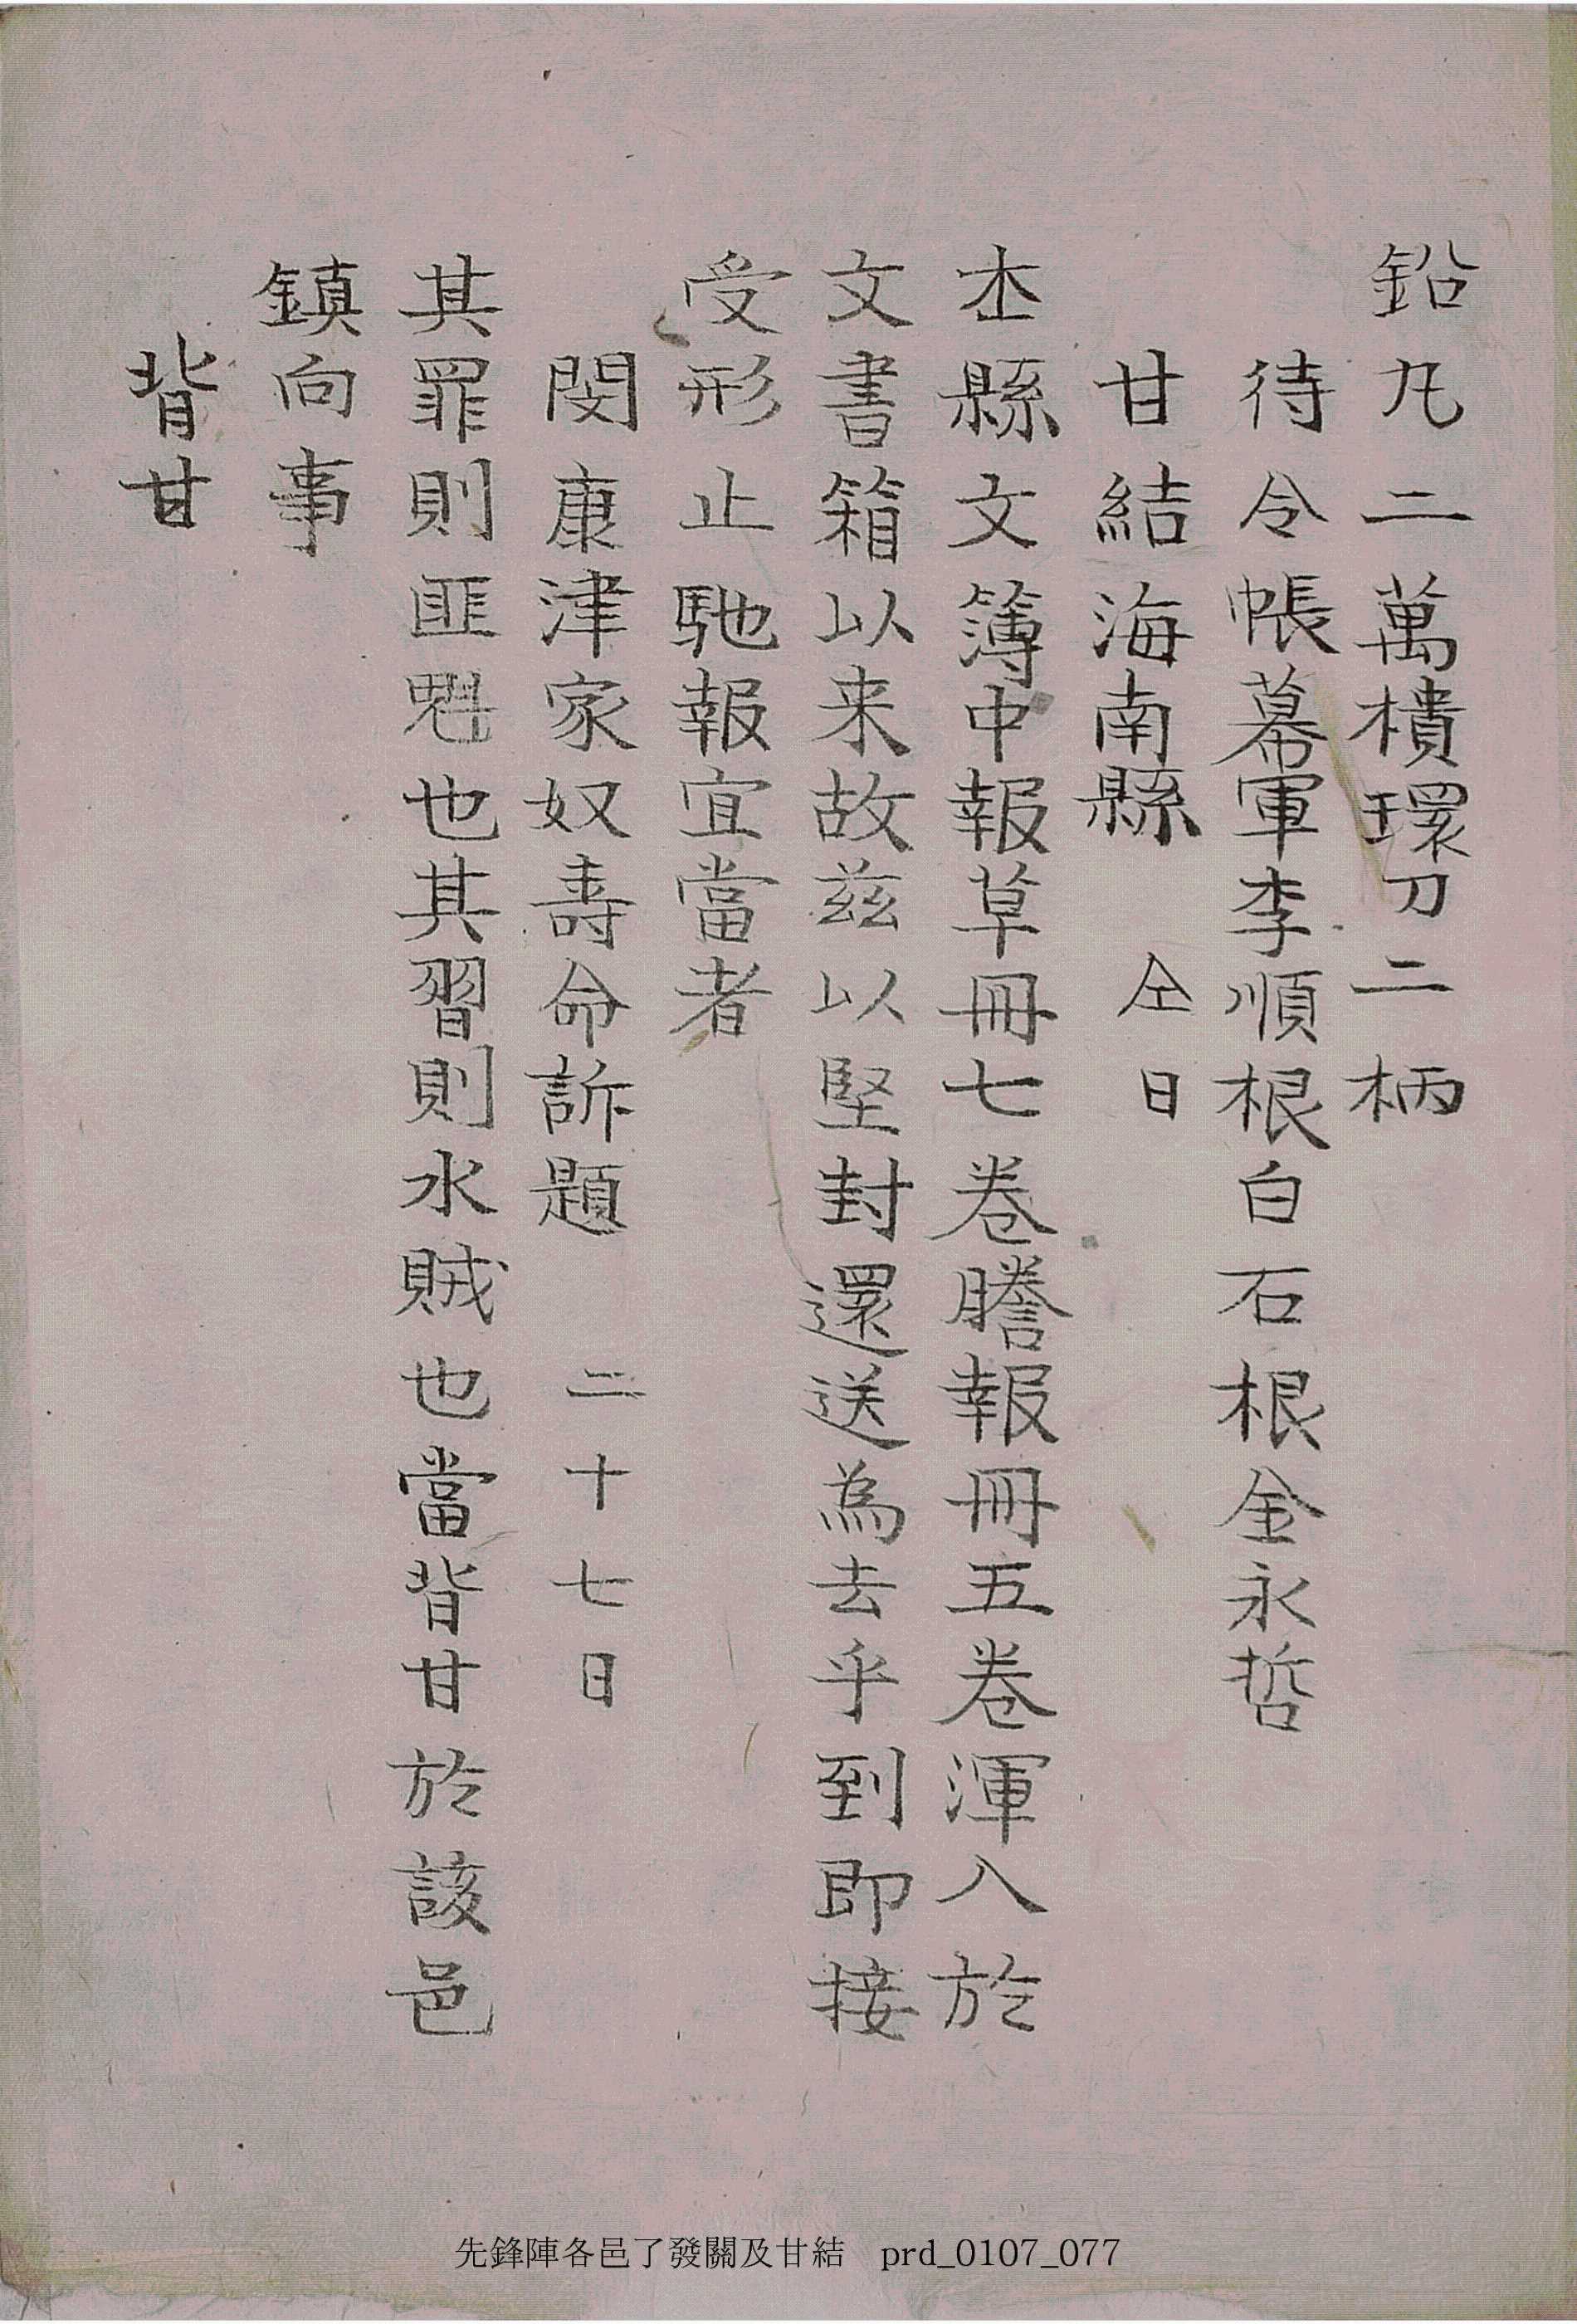 鉛丸二萬樻環刀二柄
待令帳幕軍李順根白石根金永哲
甘結海南縣 仝日
本縣文簿中報草冊七卷謄報冊五卷渾入於
文書箱以来故玆以堅封還送為去乎到即接
受形止馳報宜當者
閔康津家奴壽命訴題 二十七日
其罪則匪魁也其習則水賊也當背甘於該邑
鎮向事
背甘
先鋒陣各邑了發關及甘結 prd_0107_077